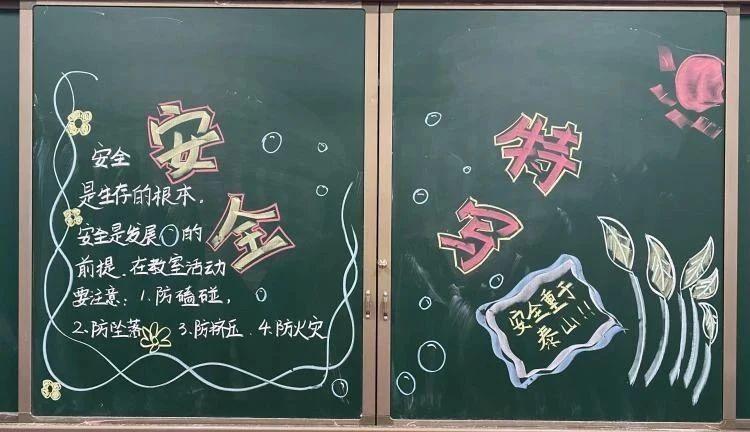 安全
安全
是生存的根本。
安全是发展的
前提、在教室活动
要注意：1.防磕碰，
2.防坠落 3.防挤压 4.防火灾
特
安全重于
泰山!!!